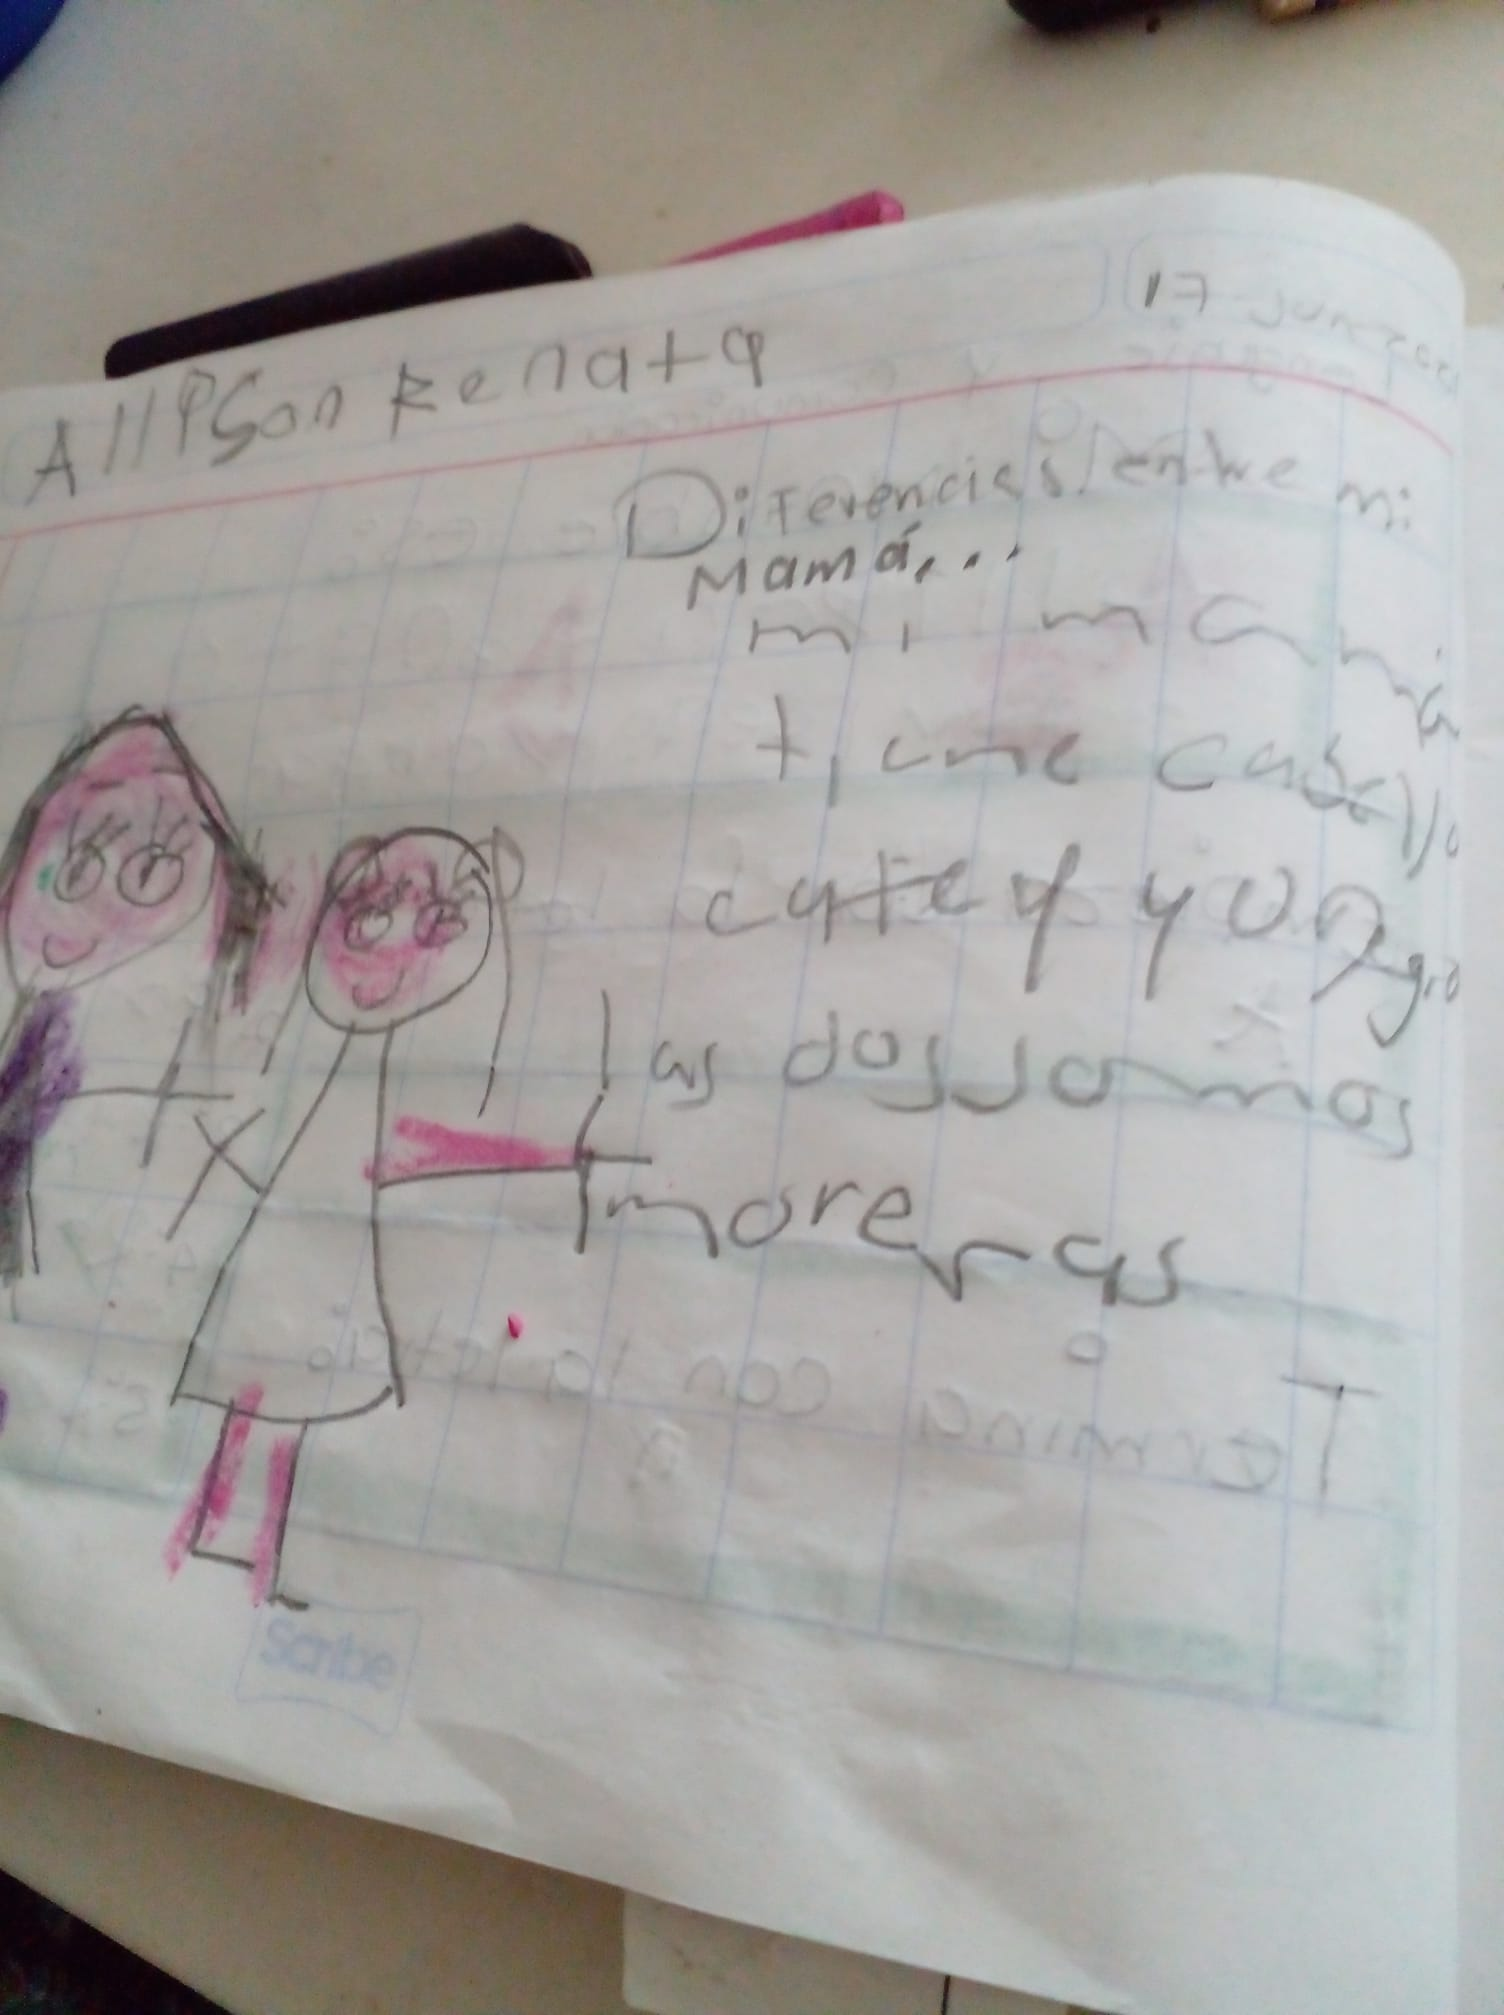 Allison Renata
17 Jun
Diferencias entre mi
Mamá...
mi mamá
tiene cabello
cafe y yo negro
las dos somos
morenas
Termina con la letra
Scribe